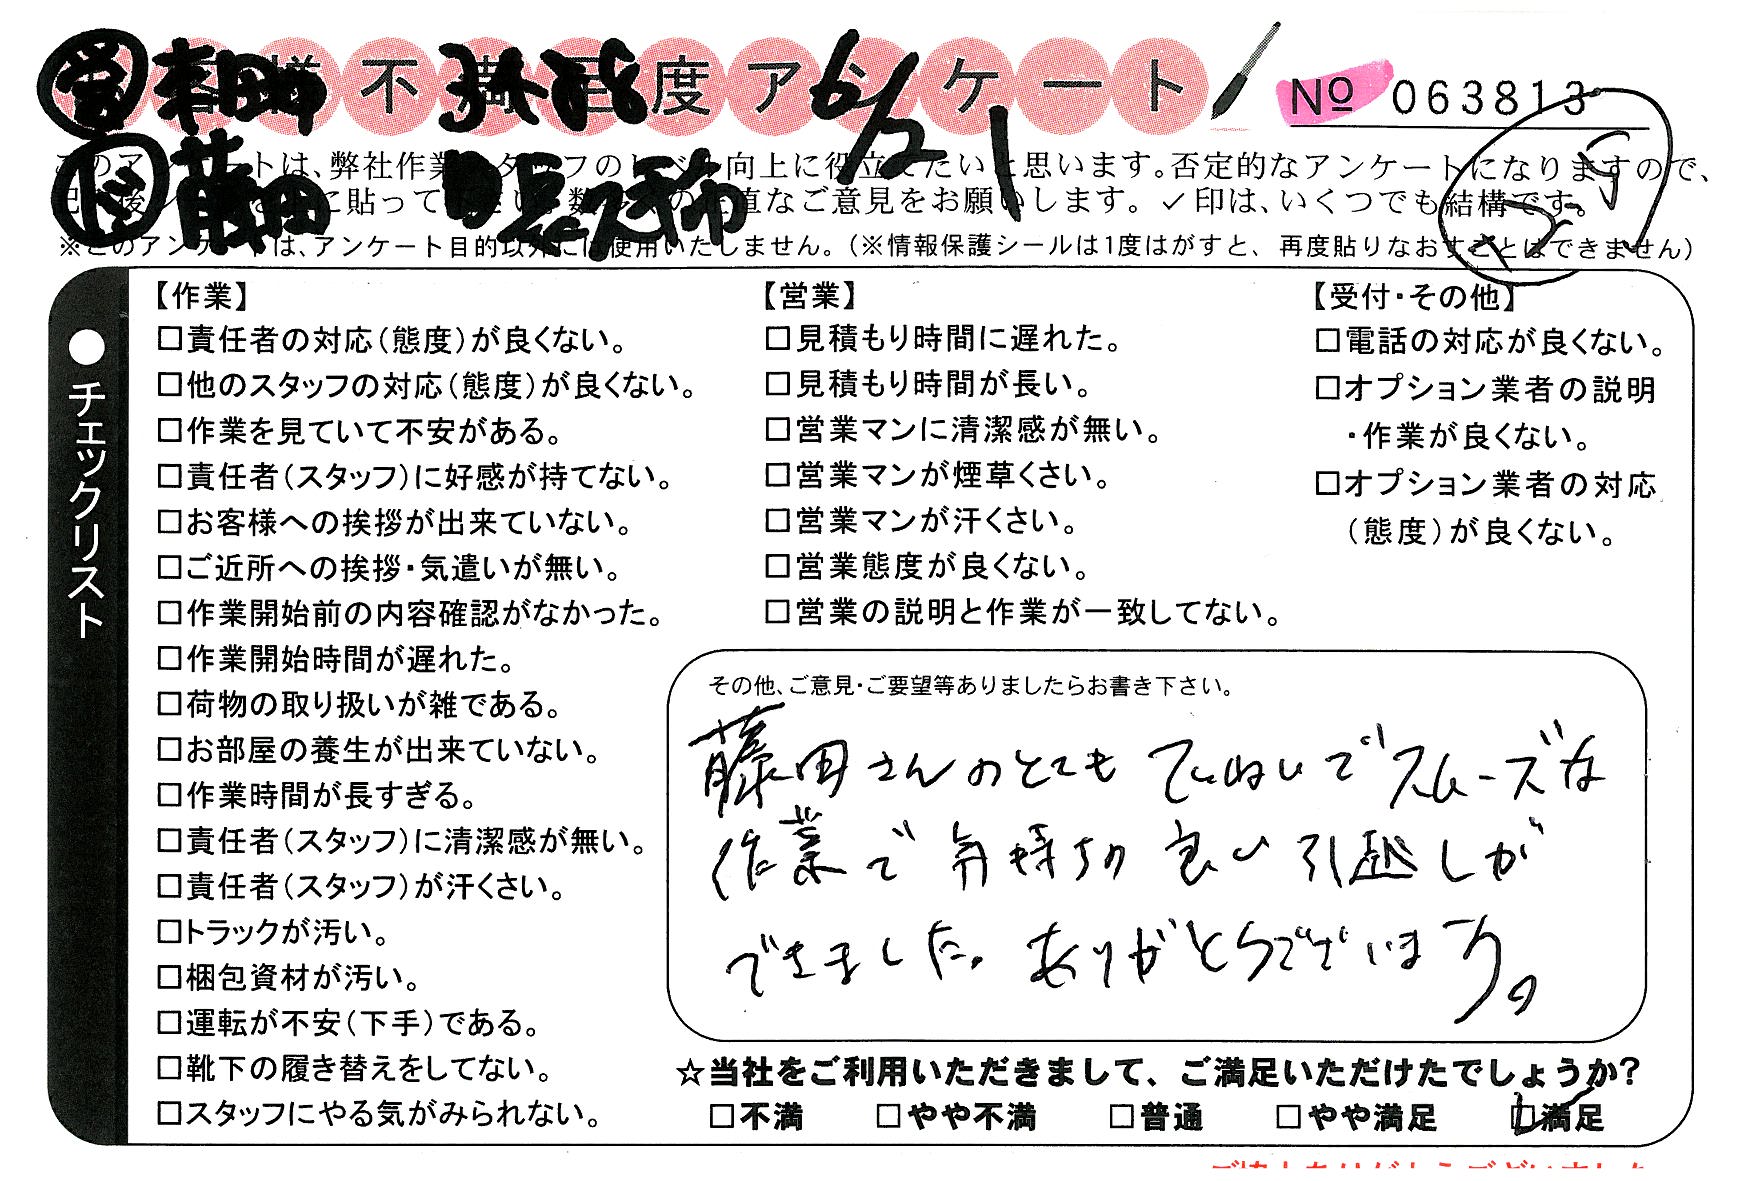 お客様不満足度アンケート
No 063813
6/21
このアンケートは、弊社作業スタッフのレベル向上に役立てたいと思います。否定的なアンケートになりますので、
に貼って 正直なご意見をお願いします。✓印は、いくつでも結構です。
※このアンケートは、アンケート目的以外には使用いたしません。（※情報保護シールは1度はがすと、再度貼りなおすことはできません）
●チェックリスト
【作業】
□責任者の対応（態度）が良くない。
□他のスタッフの対応（態度）が良くない。
□作業を見ていて不安がある。
□責任者（スタッフ）に好感が持てない。
□お客様への挨拶が出来ていない。
□ご近所への挨拶・気遣いが無い。
□作業開始前の内容確認がなかった。
□作業開始時間が遅れた。
□荷物の取り扱いが雑である。
□お部屋の養生が出来ていない。
□作業時間が長すぎる。
□責任者（スタッフ）に清潔感が無い。
□責任者（スタッフ）が汗くさい。
□トラックが汚い。
□梱包資材が汚い。
□運転が不安（下手）である。
□靴下の履き替えをしてない。
□スタッフにやる気がみられない。
【営業】
□見積もり時間に遅れた。
□見積もり時間が長い。
□営業マンに清潔感が無い。
□営業マンが煙草くさい。
□営業マンが汗くさい。
□営業態度が良くない。
□営業の説明と作業が一致してない。
【受付・その他】
□電話の対応が良くない。
□オプション業者の説明
・作業が良くない。
□オプション業者の対応
（態度）が良くない。
その他、ご意見・ご要望等ありましたらお書き下さい。
藤田さんのとてもていねいでスムーズな
作業で気持ちの良い引越しが
できました。ありがとうございます。
☆当社をご利用いただきまして、ご満足いただけたでしょうか?
□不満 □やや不満 □普通 □やや満足 ☑満足
ご協力ありがとうございました